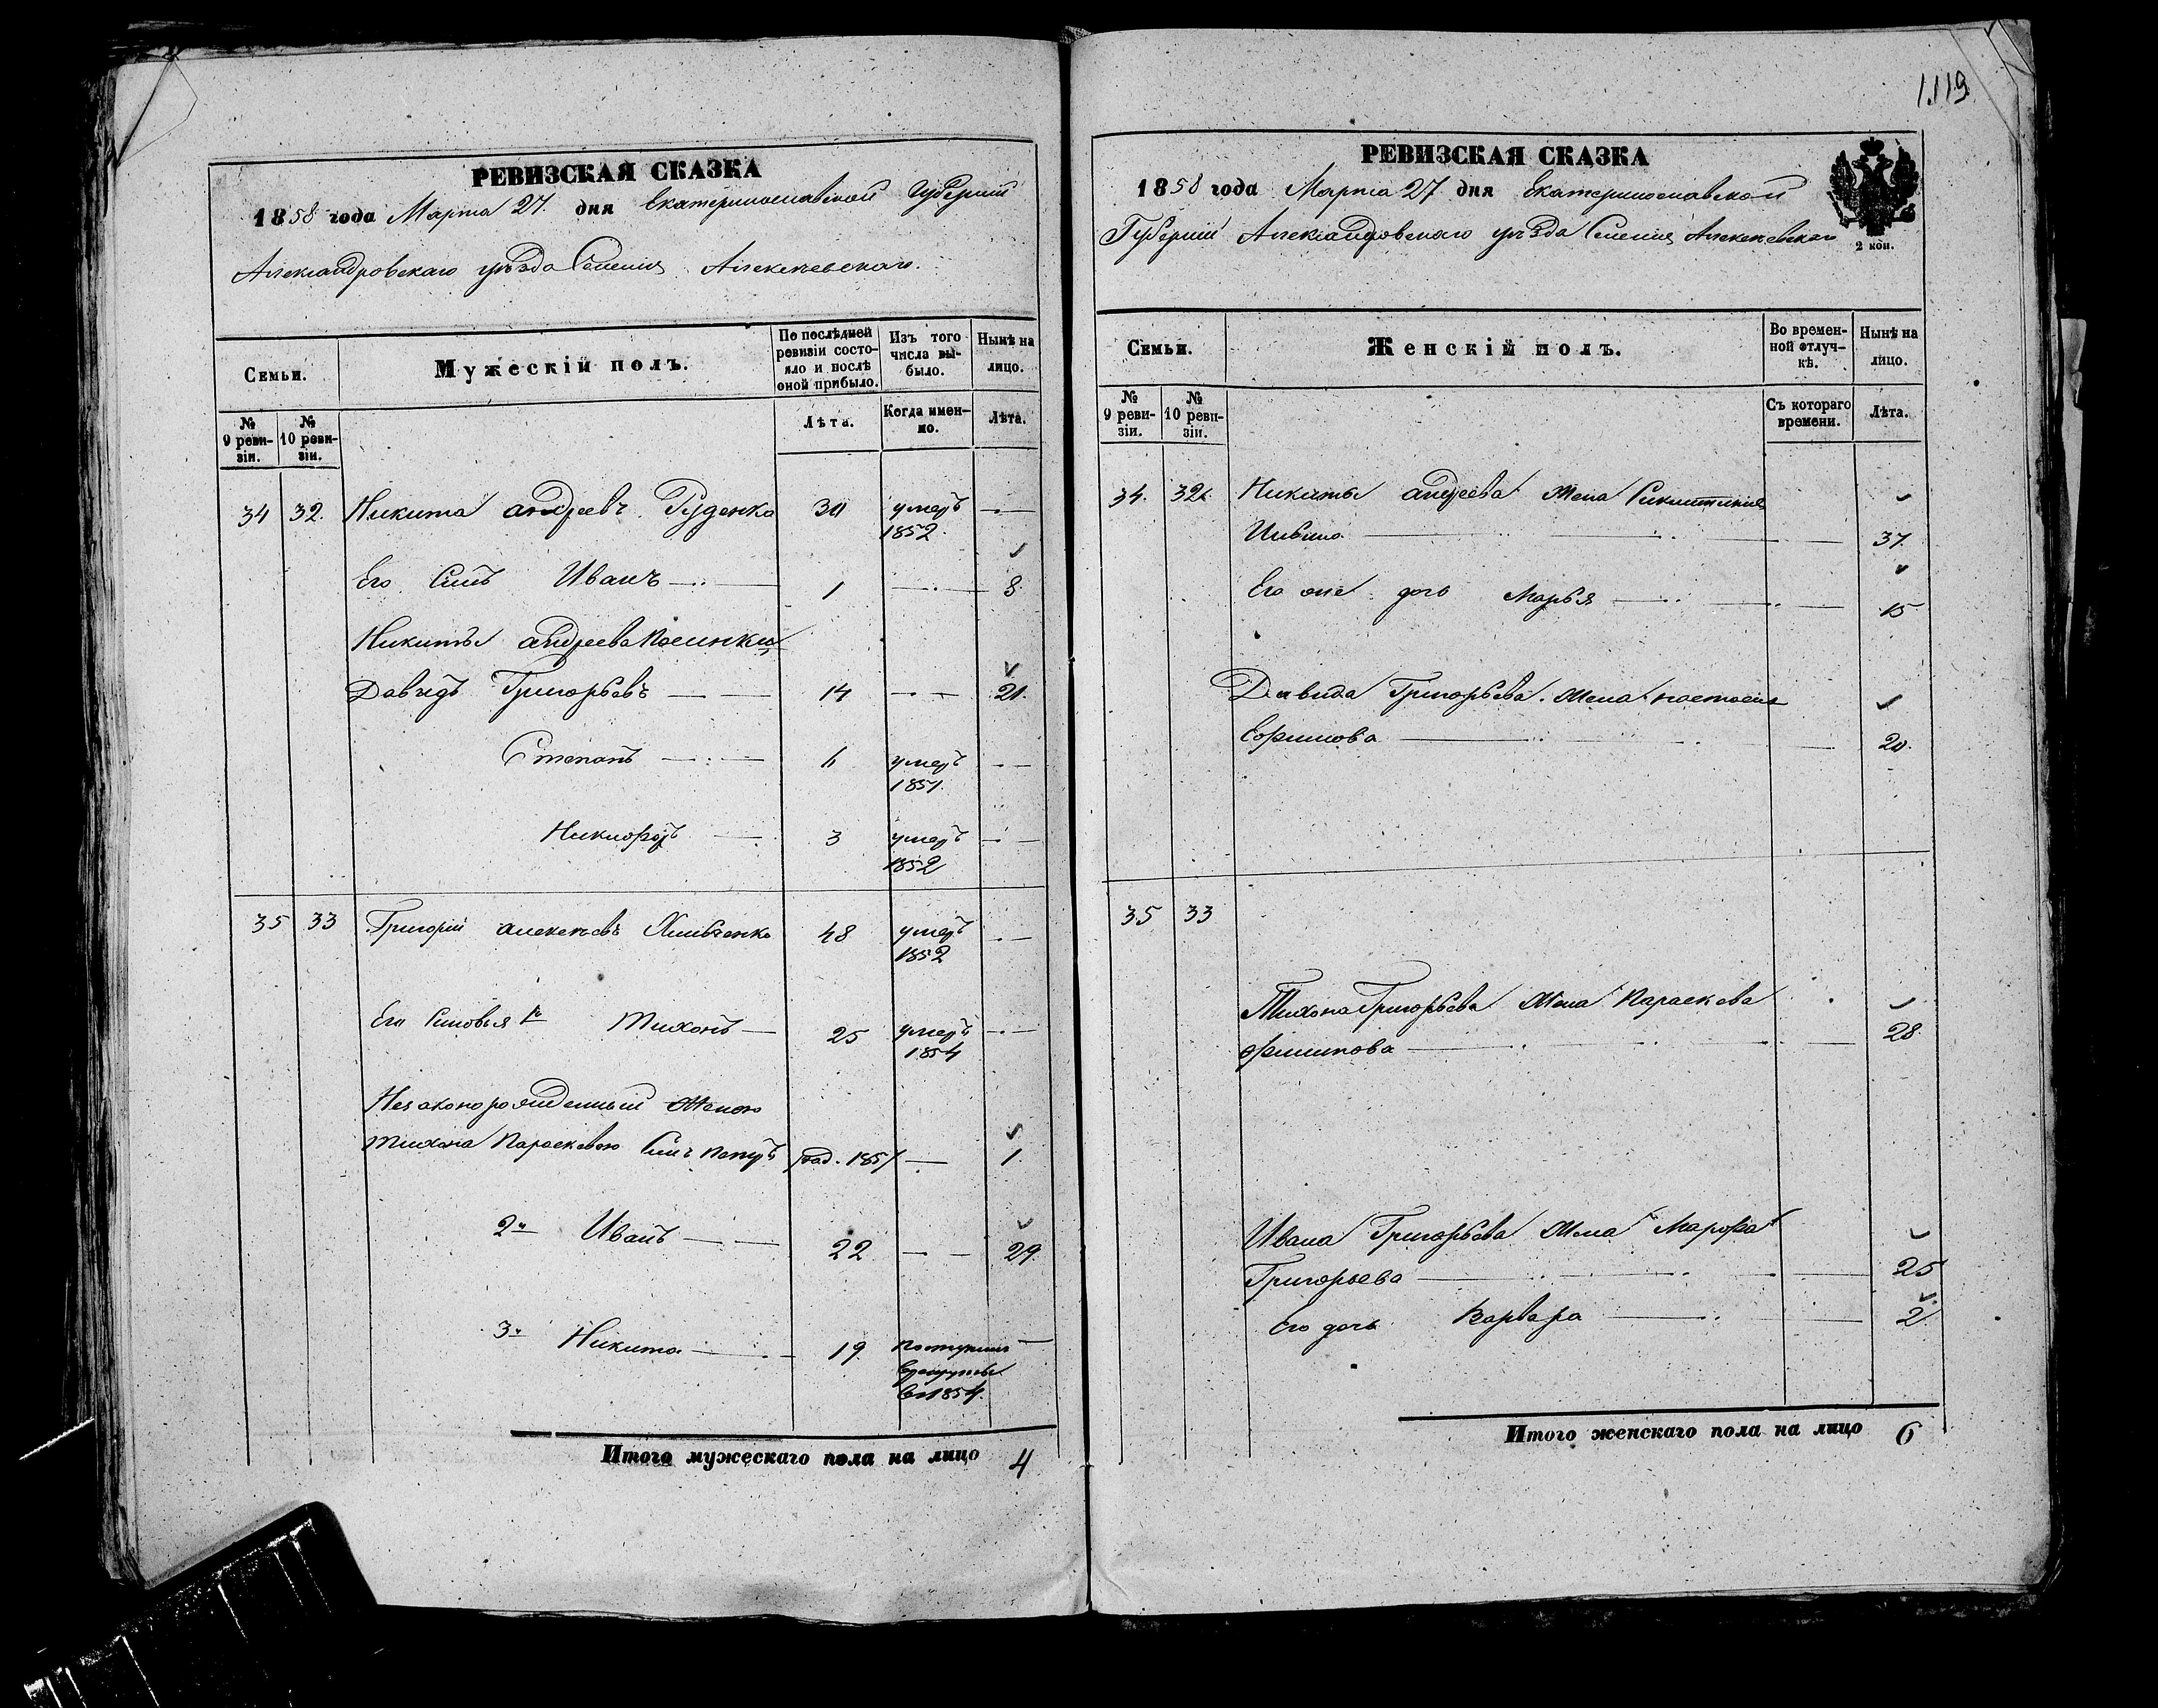 1119
РЕВИЗСКАЯ СКАЗКА
1858 года Марта 27 дня Екатеринославской Губернии
Александровскаго уѣзда Селения Алексеевскаго.
Семьи.
Мужескій полъ.
По послѣдней ревизіи состояло и послѣ оной прибыло.
Изъ того числа выбыло.
Нынѣ на лицо.
№ 9 ревизіи.
№ 10 ревизіи.
Лѣта.
Когда именно.
Лѣта.
34 32. Никита Андреевъ Руденко 30 умеръ —
1852
Его Сынъ Иванъ 1 — 8
Никиты Андреева
Давидъ Григорьевъ 14 — 21.
Степанъ 6 умеръ —
1851.
Никифоръ 3 умеръ —
1852
35 33 Григорий Алексеевъ 48 умеръ —
1852
Его Сыновья 1й Тихонъ 25 умеръ —
1854
Незаконорожденный Женою
Тихона Параскевою Сынъ род. 1857 — 1.
2й Иванъ 22 — 29.
3й Никита 19 поступилъ —
в рекруты
в 1854.
Итого мужескаго пола на лицо 4
РЕВИЗСКАЯ СКАЗКА
1858 года Марта 27 дня Екатеринославской
Губернии Александровскаго уѣзда Селения Алексеевскаго
2 коп.
Семьи.
Женскій полъ.
Во временной отлучкѣ.
Нынѣ на лицо.
№ 9 ревизіи.
№ 10 ревизіи.
Съ котораго времени.
Лѣта.
34. 32. Никиты Андреева жена
37.
Его же дочь Марья 15
Давида Григорьева жена Настасия
Ефимова 20.
35 33
Тихона Григорьева Жена Параскева
Филипова 28.
Ивана Григорьева Жена Марфа
Григорьева 25
Его дочь Варвара 2
Итого женскаго пола на лицо 6